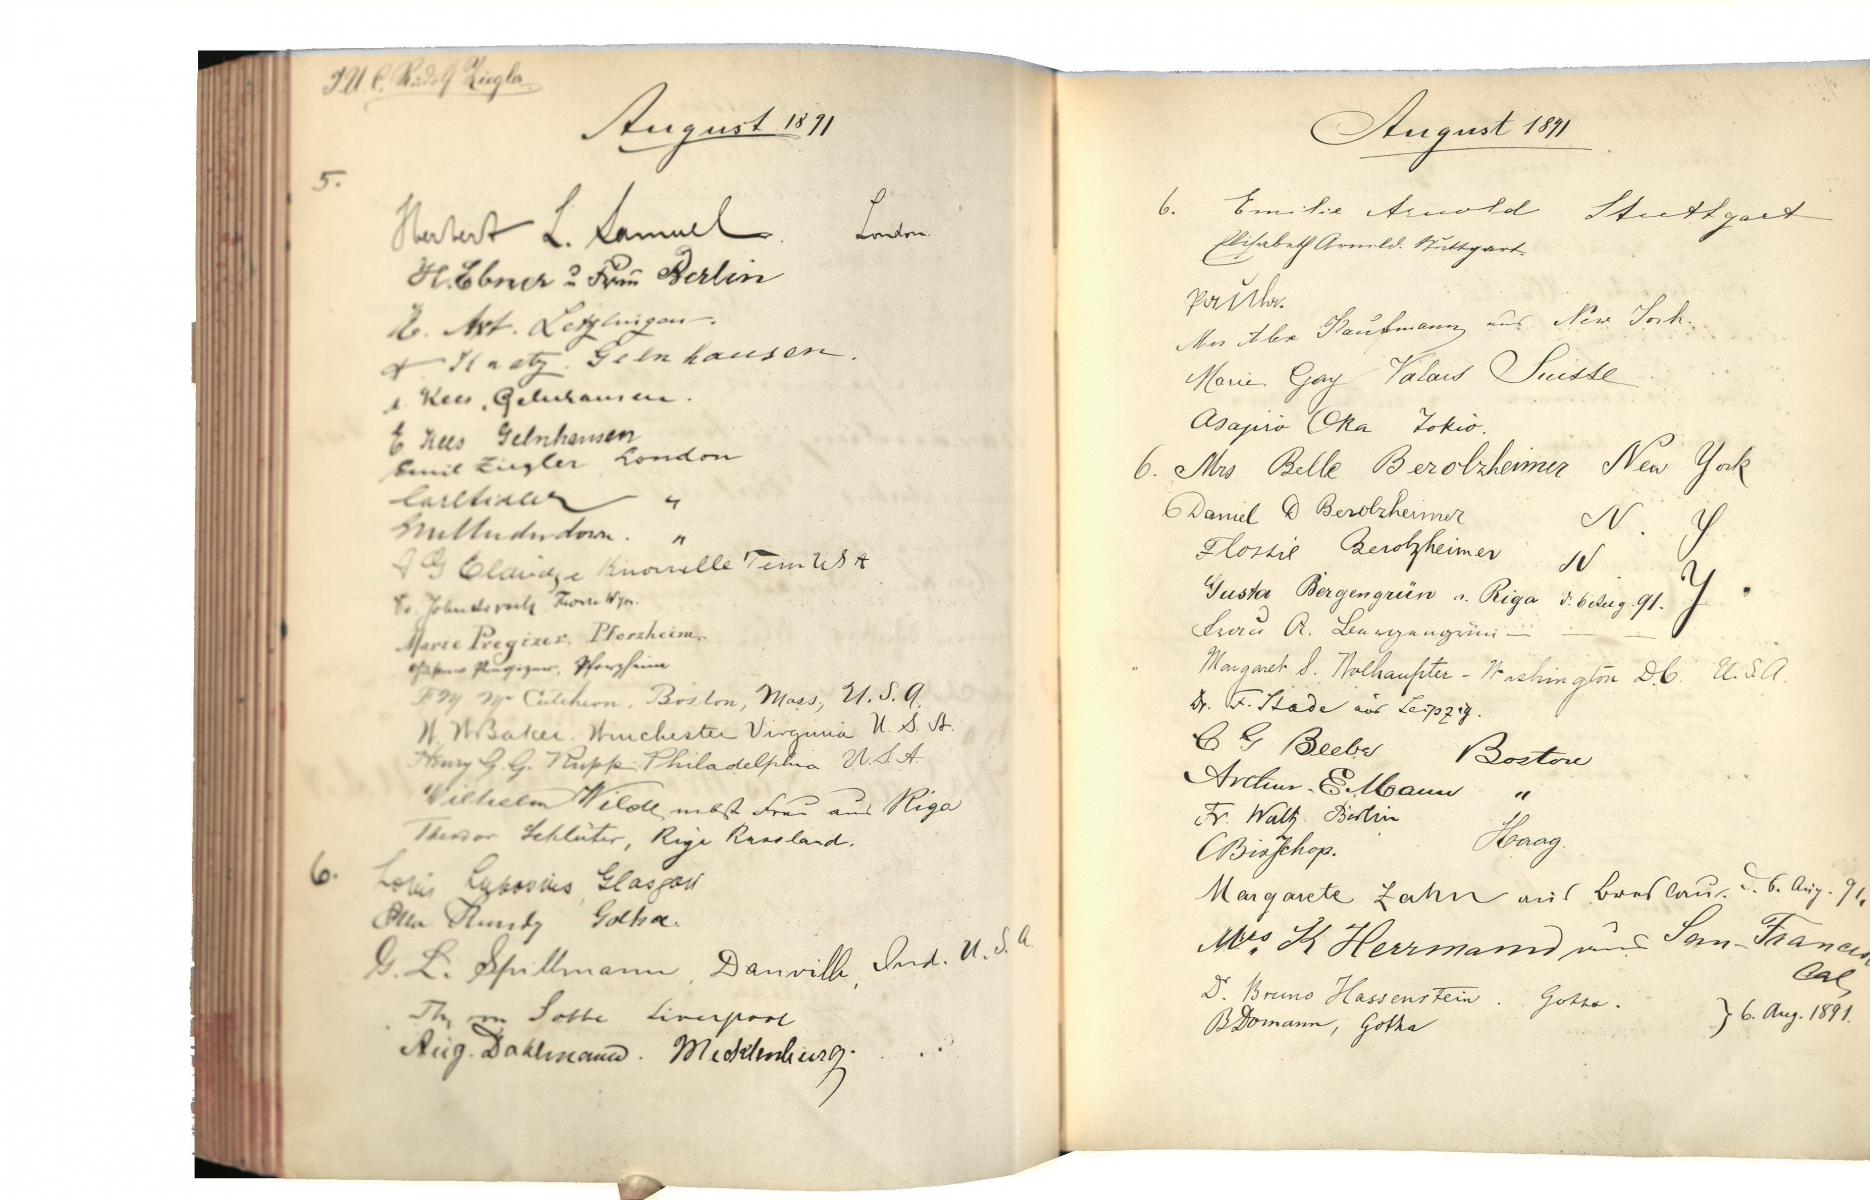 Rudolf Ziegler
August 1891
5.
Herbert L. Samuel. London.
H. Ebner u Frau Berlin
H. Axt. Letzlingen.
Kratz. Gelnhausen.
Kees, Gelnhausen.
E Kees Gelnhausen
Emil Ziegler London
"
"
G Eldridge Knoxville Tenn USA
Marie Pregizer. Pforzheim.
Pregizer. Pforzheim
Mc Cutcheon. Boston, Mass, U.S.A.
W. W Baker. Winchester Virginia U.S.A.
Henry G. G. Rupp. Philadelphia U.S.A.
Wilhelm Wilde nebst Frau aus Riga
Theodor Schlüter, Riga Russland.
6. Louis Glasgow
Gotha.
G. L. Spillmann, Danville, Ind. U.S.A.
Liverpool
Aug. Dahlmann. Mecklenburg.
August 1891
6. Emilie Arnold Stuttgart
Elisabeth Arnold. Stuttgart.
Mrs Alex Kaufmann aus New York.
Marie Gay Valais Suisse
Asajiro Oka Tokio.
6. Mrs Belle Berolzheimer New York
6 Daniel D Berolzheimer N. Y
Flossie Berolzheimer N Y.
Gusta Bergengrün a. Riga d. 6 Aug. 91.
Margaret S. Wolhaupter - Washington D.C. U.S.A.
Dr. F. Stade aus Leipzig.
C G Beebe Boston
Arthur. E. Mann "
Fr. Waltz. Berlin
C Bisschop. Haag.
Margarete Zahn aus Breslau. d. 6. Aug. 91.
Mrs. K Herrmann aus San-Francisco
Cal,
D. Bruno Hassenstein. Gotha.
B Domann, Gotha } 6. Aug. 1891.